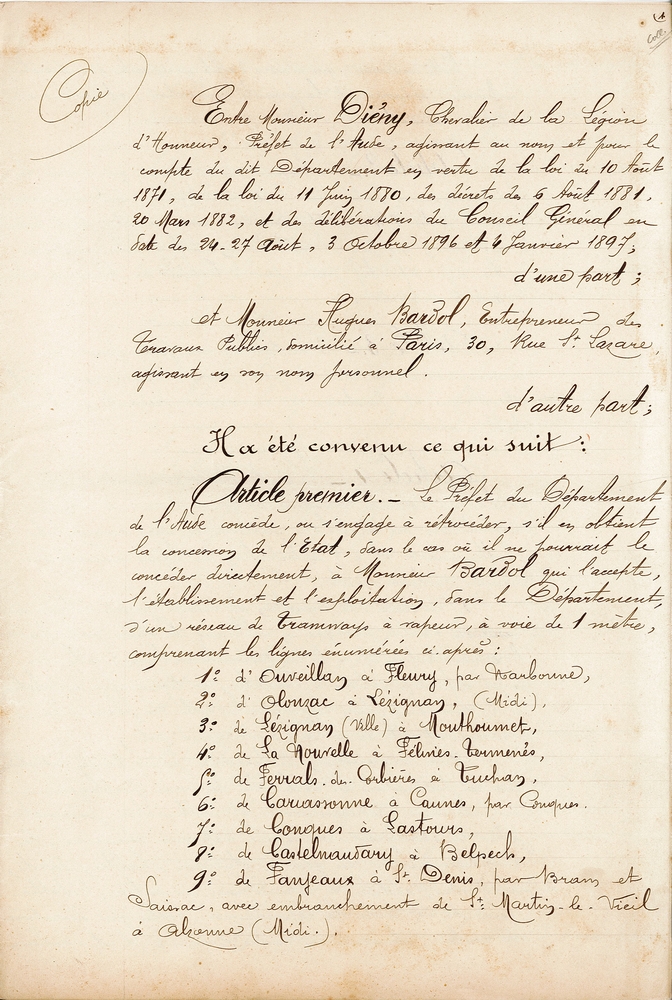 Copie
Entre Monsieur Diény, Chevalier de la Légion
d'Honneur, Préfet de l'Aude, agissant au nom et pour le
compte du dit Département en vertu de la loi du 10 Août
1871, de la loi du 11 Juin 1880, des décrets des 6 Août 1881,
20 Mars 1882, et des délibérations du Conseil Général en
date des 24-27 Août, 3 Octobre 1896 et 4 Janvier 1897;
d'une part;
et Monsieur Hugues Bardol, Entrepreneur des
Travaux Publics, domicilié à Paris, 30, Rue St. Lazare,
agissant en son nom personnel.
d'autre part;
Il a été convenu ce qui suit:
Article premier. - Le Préfet du Département
de l'Aude concède, ou s'engage à rétrocéder, s'il en obtient
la concession de l'Etat, dans le cas où il ne pourrait le
concéder directement, à Monsieur Bardol qui l'accepte,
l'établissement et l'exploitation, dans le Département,
d'un réseau de Tramways à vapeur, à voie de 1 mètre,
comprenant les lignes énumérées ci-après:
1º d'Ouveillan à Fleury, par Narbonne,
2º d'Olonzac à Lézignan, (Midi),
3º de Lézignan (Ville) à Mouthoumet,
4º de La Nouvelle à Félines-Termenès,
5º de Ferrals-des-Corbières à Tuchan,
6º de Carcassonne à Caunes, par Conques.
7º de Conques à Lastours,
8º de Castelnaudary à Belpech,
9º de Fanjeaux à St. Denis, par Bram et
Saissac, avec embranchement de St. Martin-le-Vieil
à Alzonne (Midi.).